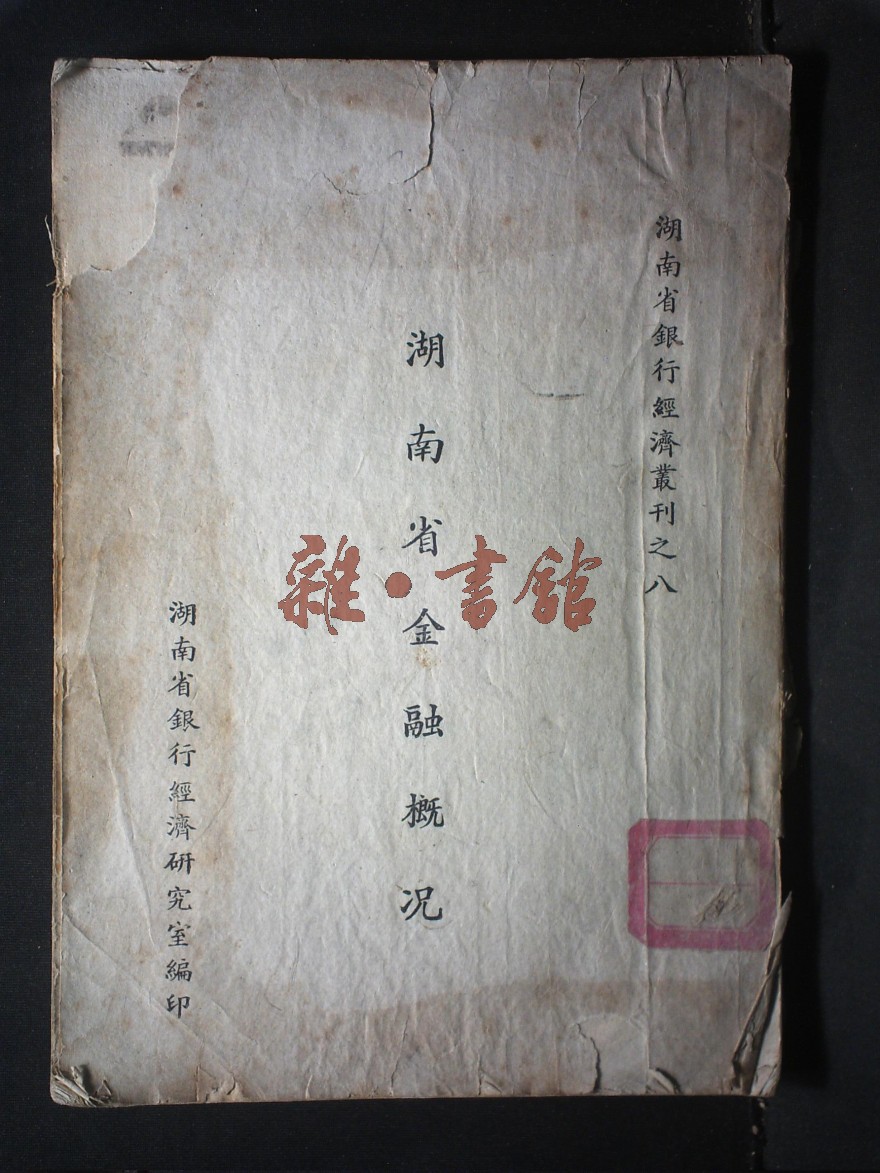 湖南省銀行經濟叢刊之八
湖南省金融概况
湖南省銀行經濟研究室編印
雜·書館